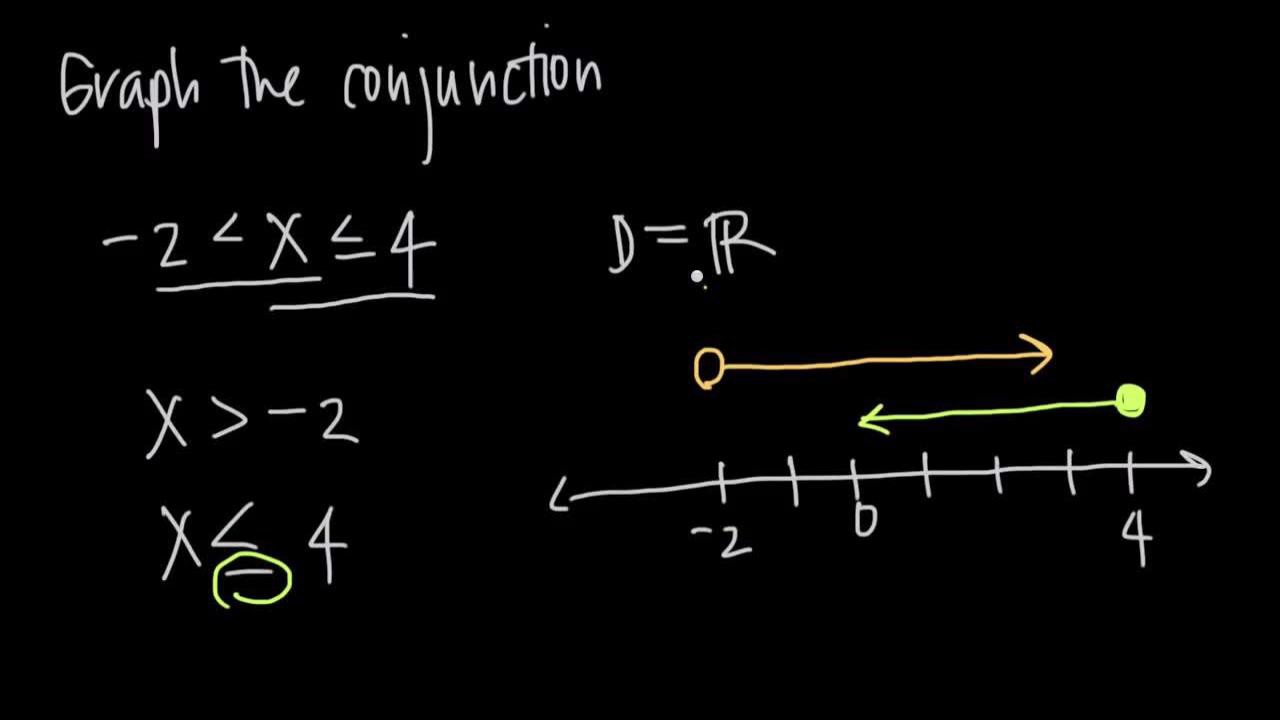 Graph the conjunction
-2 < x ≤ 4
D = ℝ
x > -2
x ≤ 4
-2 0 4